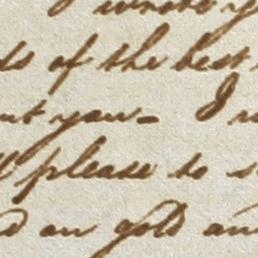 I wrote y
ds of the best
ut you - I w
ll please to s
d an gold an